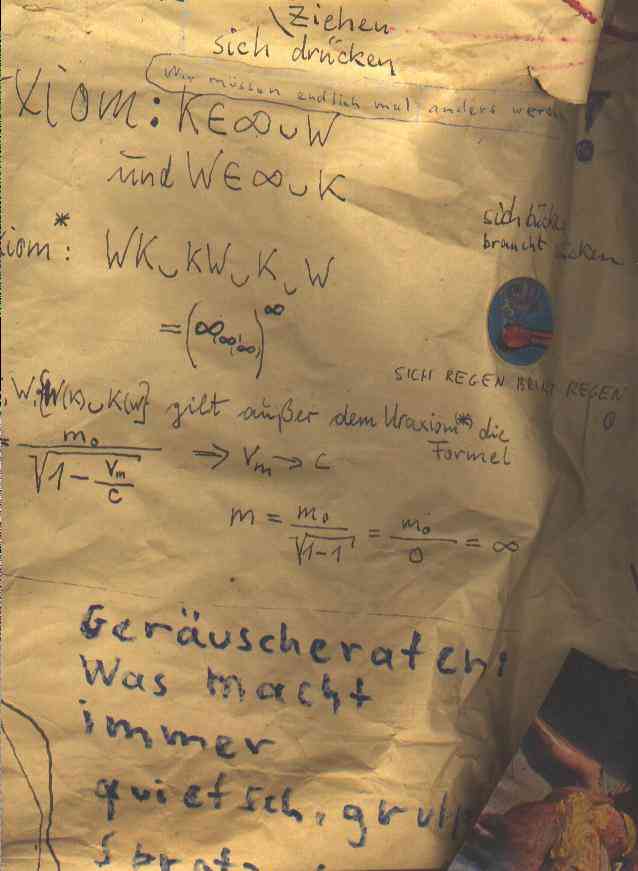 Ziehen
sich drücken
Wir müssen endlich mal anders
xiom: K∈∞∪W
und W∈∞∪K
sich
braucht
xiom*: WK∪KW∪K∪W
=(∞∞∞∞)^∞
SICH REGEN BRINGT REGEN
, W,{W(K)∪K(W)} gilt außer dem Uraxiom(*) die
Formel
= m₀/√(1-vₘ/c) ⇒ vₘ→c
m = m₀/√(1-1) = m₀/0 = ∞
Geräuscheraten:
Was macht
immer
quietsch, grull